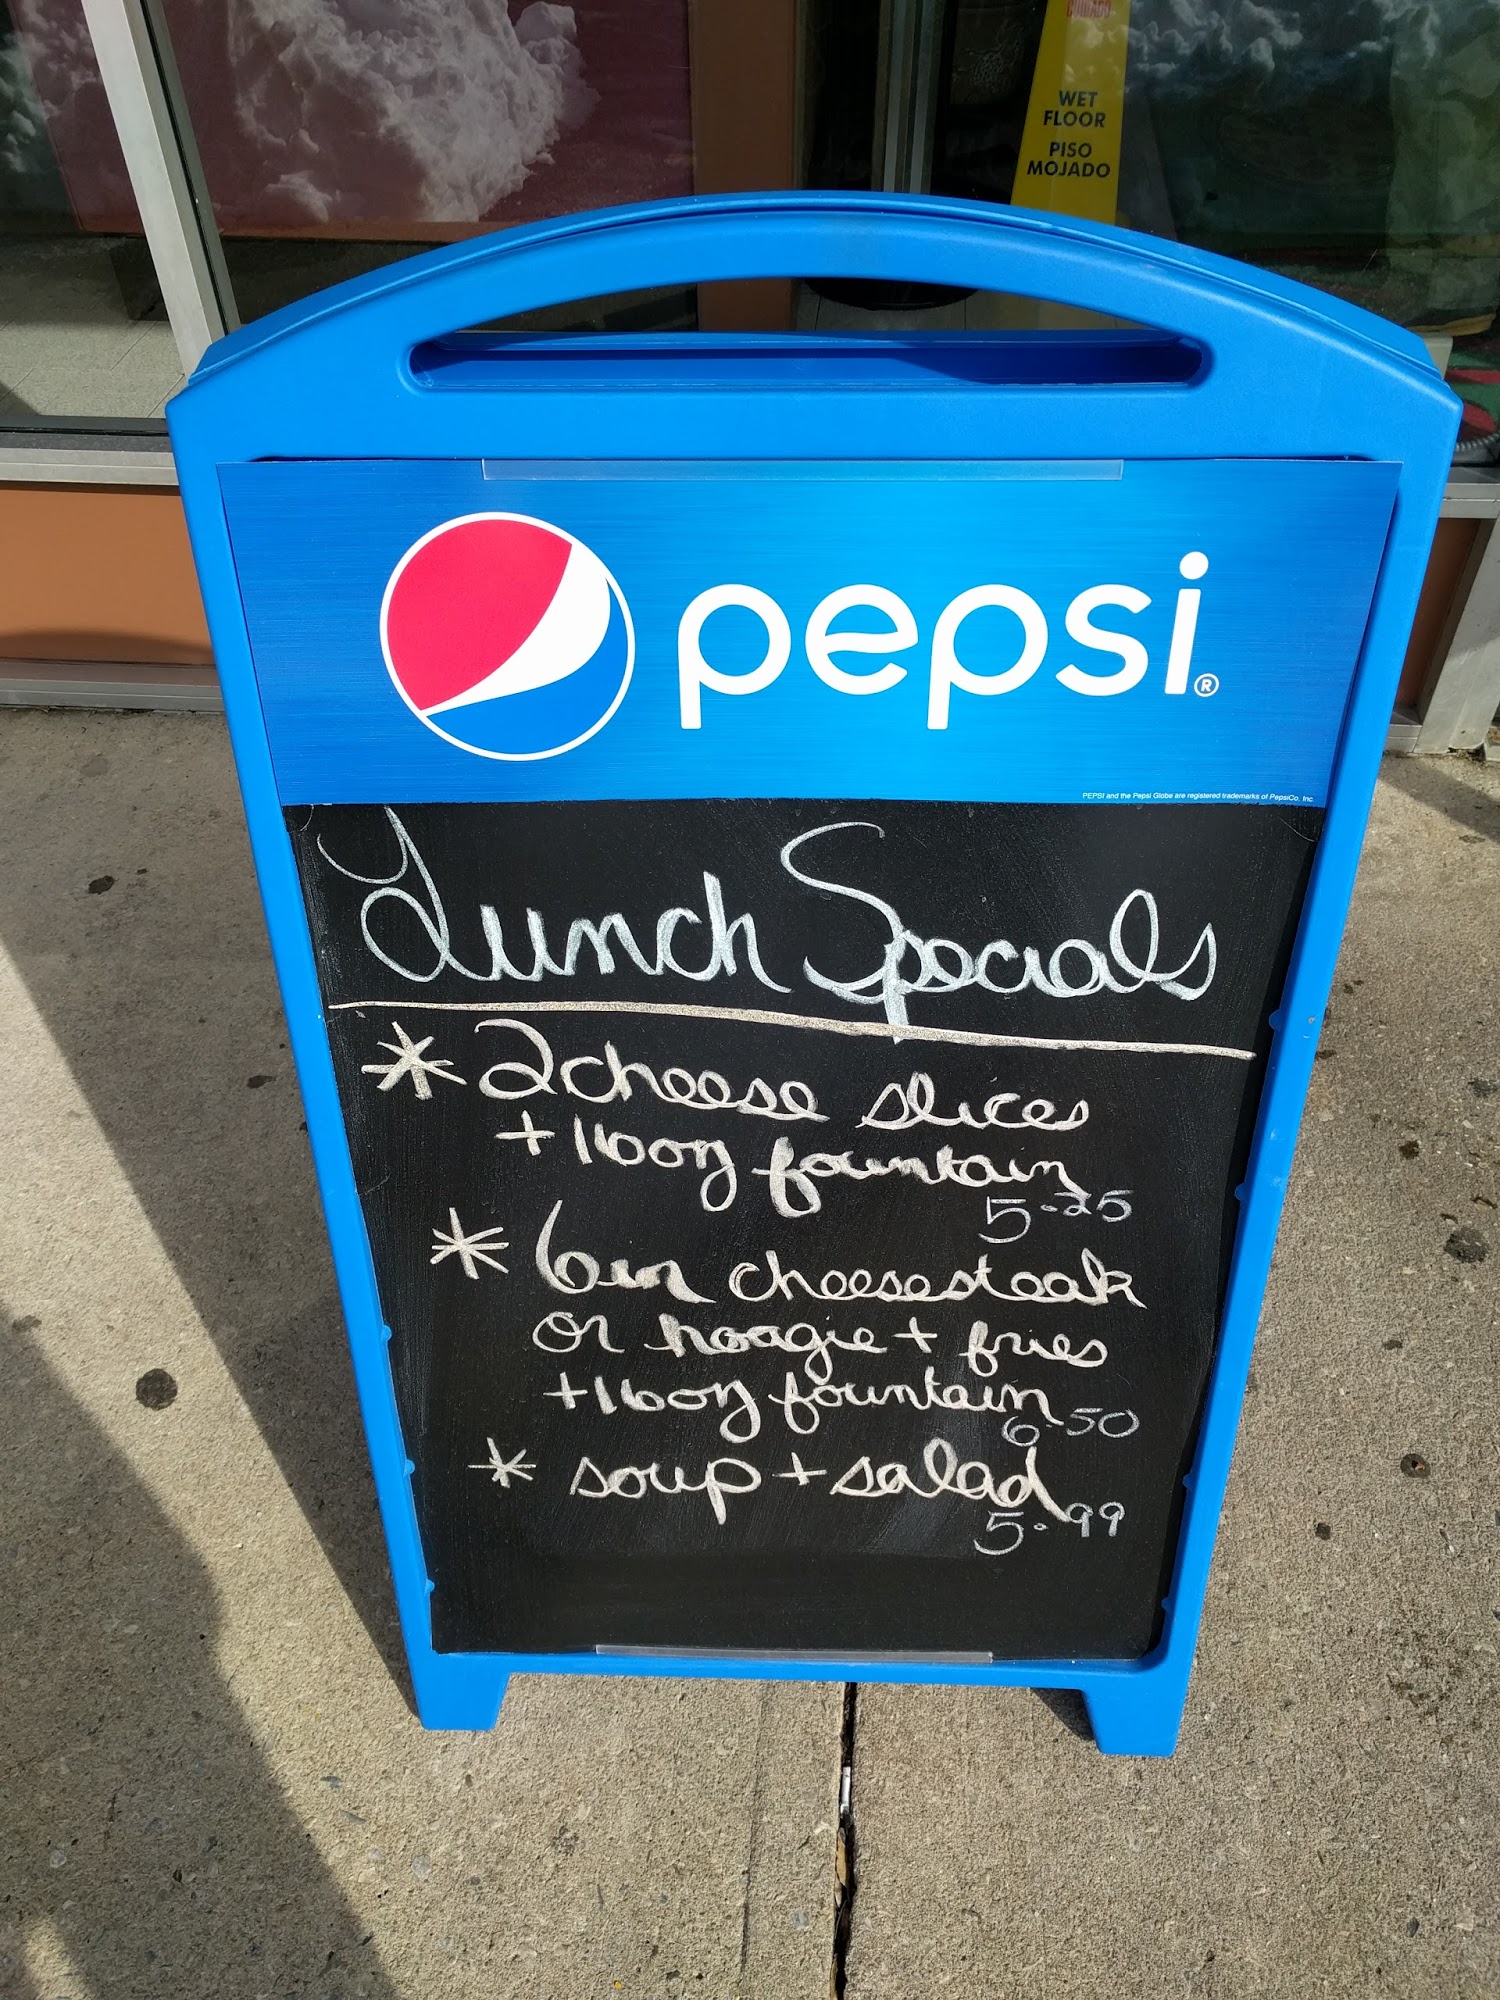 CUIDADO
WET
FLOOR
PISO
MOJADO
pepsi®
PEPSI and the Pepsi Globe are registered trademarks of PepsiCo, Inc.
Lunch Specials
* 2 cheese slices
+ 16oz fountain
5.25
* 6in cheesesteak
or hoagie + fries
+ 16oz fountain
6.50
* soup + salad
5.99